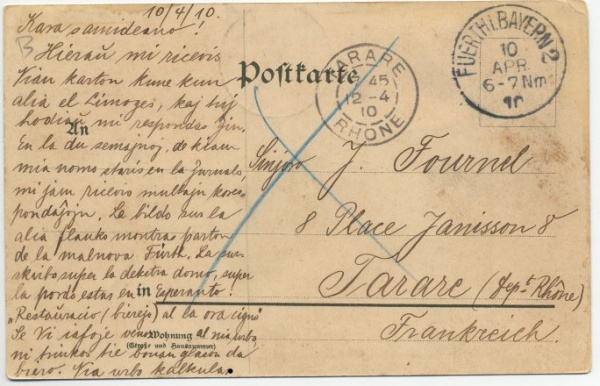 10/4/10.
Kara samideano!
Hieraŭ mi ricevis
Vian karton kune kun
alia el Limoges, kaj
hodiaŭ mi respondas ĝin.
En la du semajnoj, de kiam
mia nomo staris en la Jurnalo,
mi jam ricevis multajn kores-
pondaĵojn. La bildo sur la
alia flanko montras parton
de la malnova Fürth. La sur-
skribo super la dekstra domo, super
la pordo estas en Esperanto:
"Restauracio (bierejo) al la ora cigno"
Se Vi iafoje venos al nia urbo,
ni trinkos tie bonan glason da
biero. Via urbo
Postkarte
An
in
Wohnung
(Straße und Hausnummer)
TARARE
45
12-4
10
RHONE
FUERTH I. BAYERN 2
10
APR.
6-7 Nm
10
Sinjoro J. Fournel
8 Place Janisson 8
Tarare (Dept Rhône)
Frankreich.